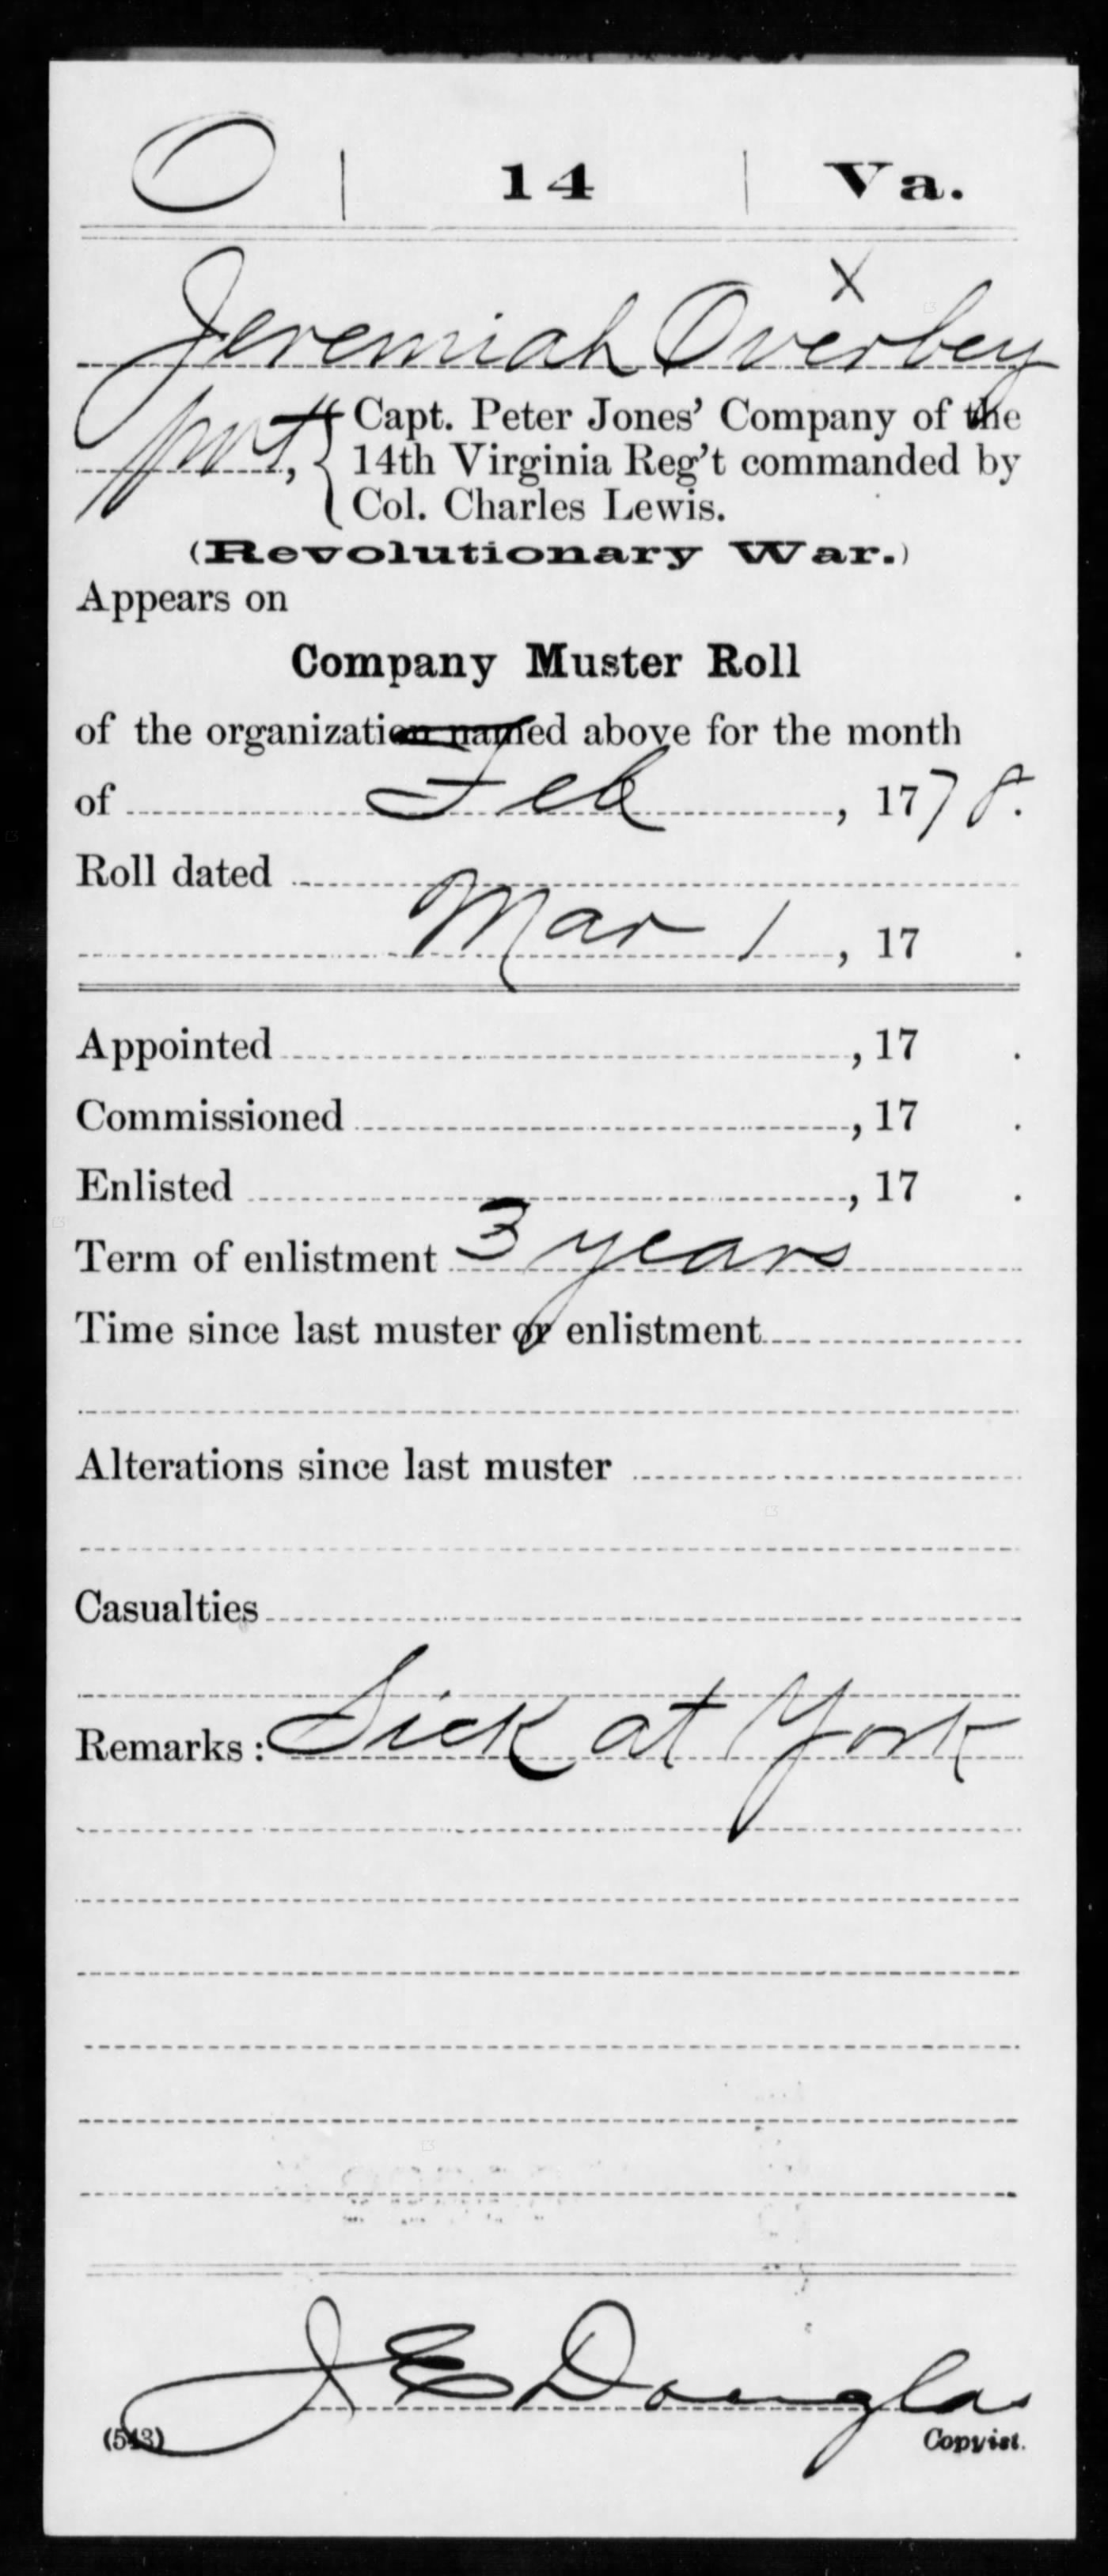 O | 14 | Va.
x
Jeremiah Overbey
pvt, { Capt. Peter Jones' Company of the
14th Virginia Reg't commanded by
Col. Charles Lewis.
(Revolutionary War.)
Appears on
Company Muster Roll
of the organization named above for the month
of Feb, 1778.
Roll dated
Mar 1, 17 .
Appointed, 17 .
Commissioned, 17 .
Enlisted, 17 .
Term of enlistment 3 years
Time since last muster or enlistment
Alterations since last muster
Casualties
Remarks: Sick at York
J E Douglas
(543) Copyist.